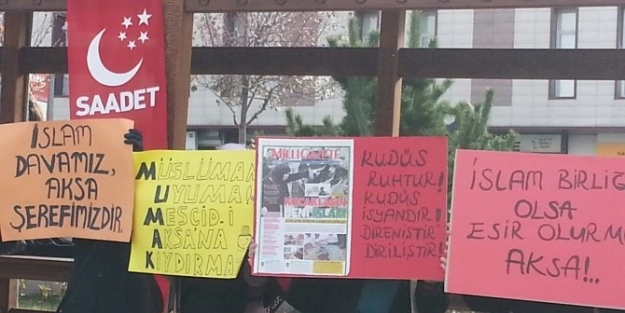 SAADET
İSLAM
DAVAMIZ,
AKSA
ŞEREFİMİZDİR.
MÜSLÜMAN
UYUMA
MESCİD-İ
AKSANA
KIYDIRMA
MİLLİ GAZETE
KUDÜS
RUHTUR!
KUDÜS
İSYANDIR!
DİRENİŞTİR
DİRİLİŞTİR!
İSLAM BİRLİĞ
OLSA
ESİR OLURM
AKSA!..